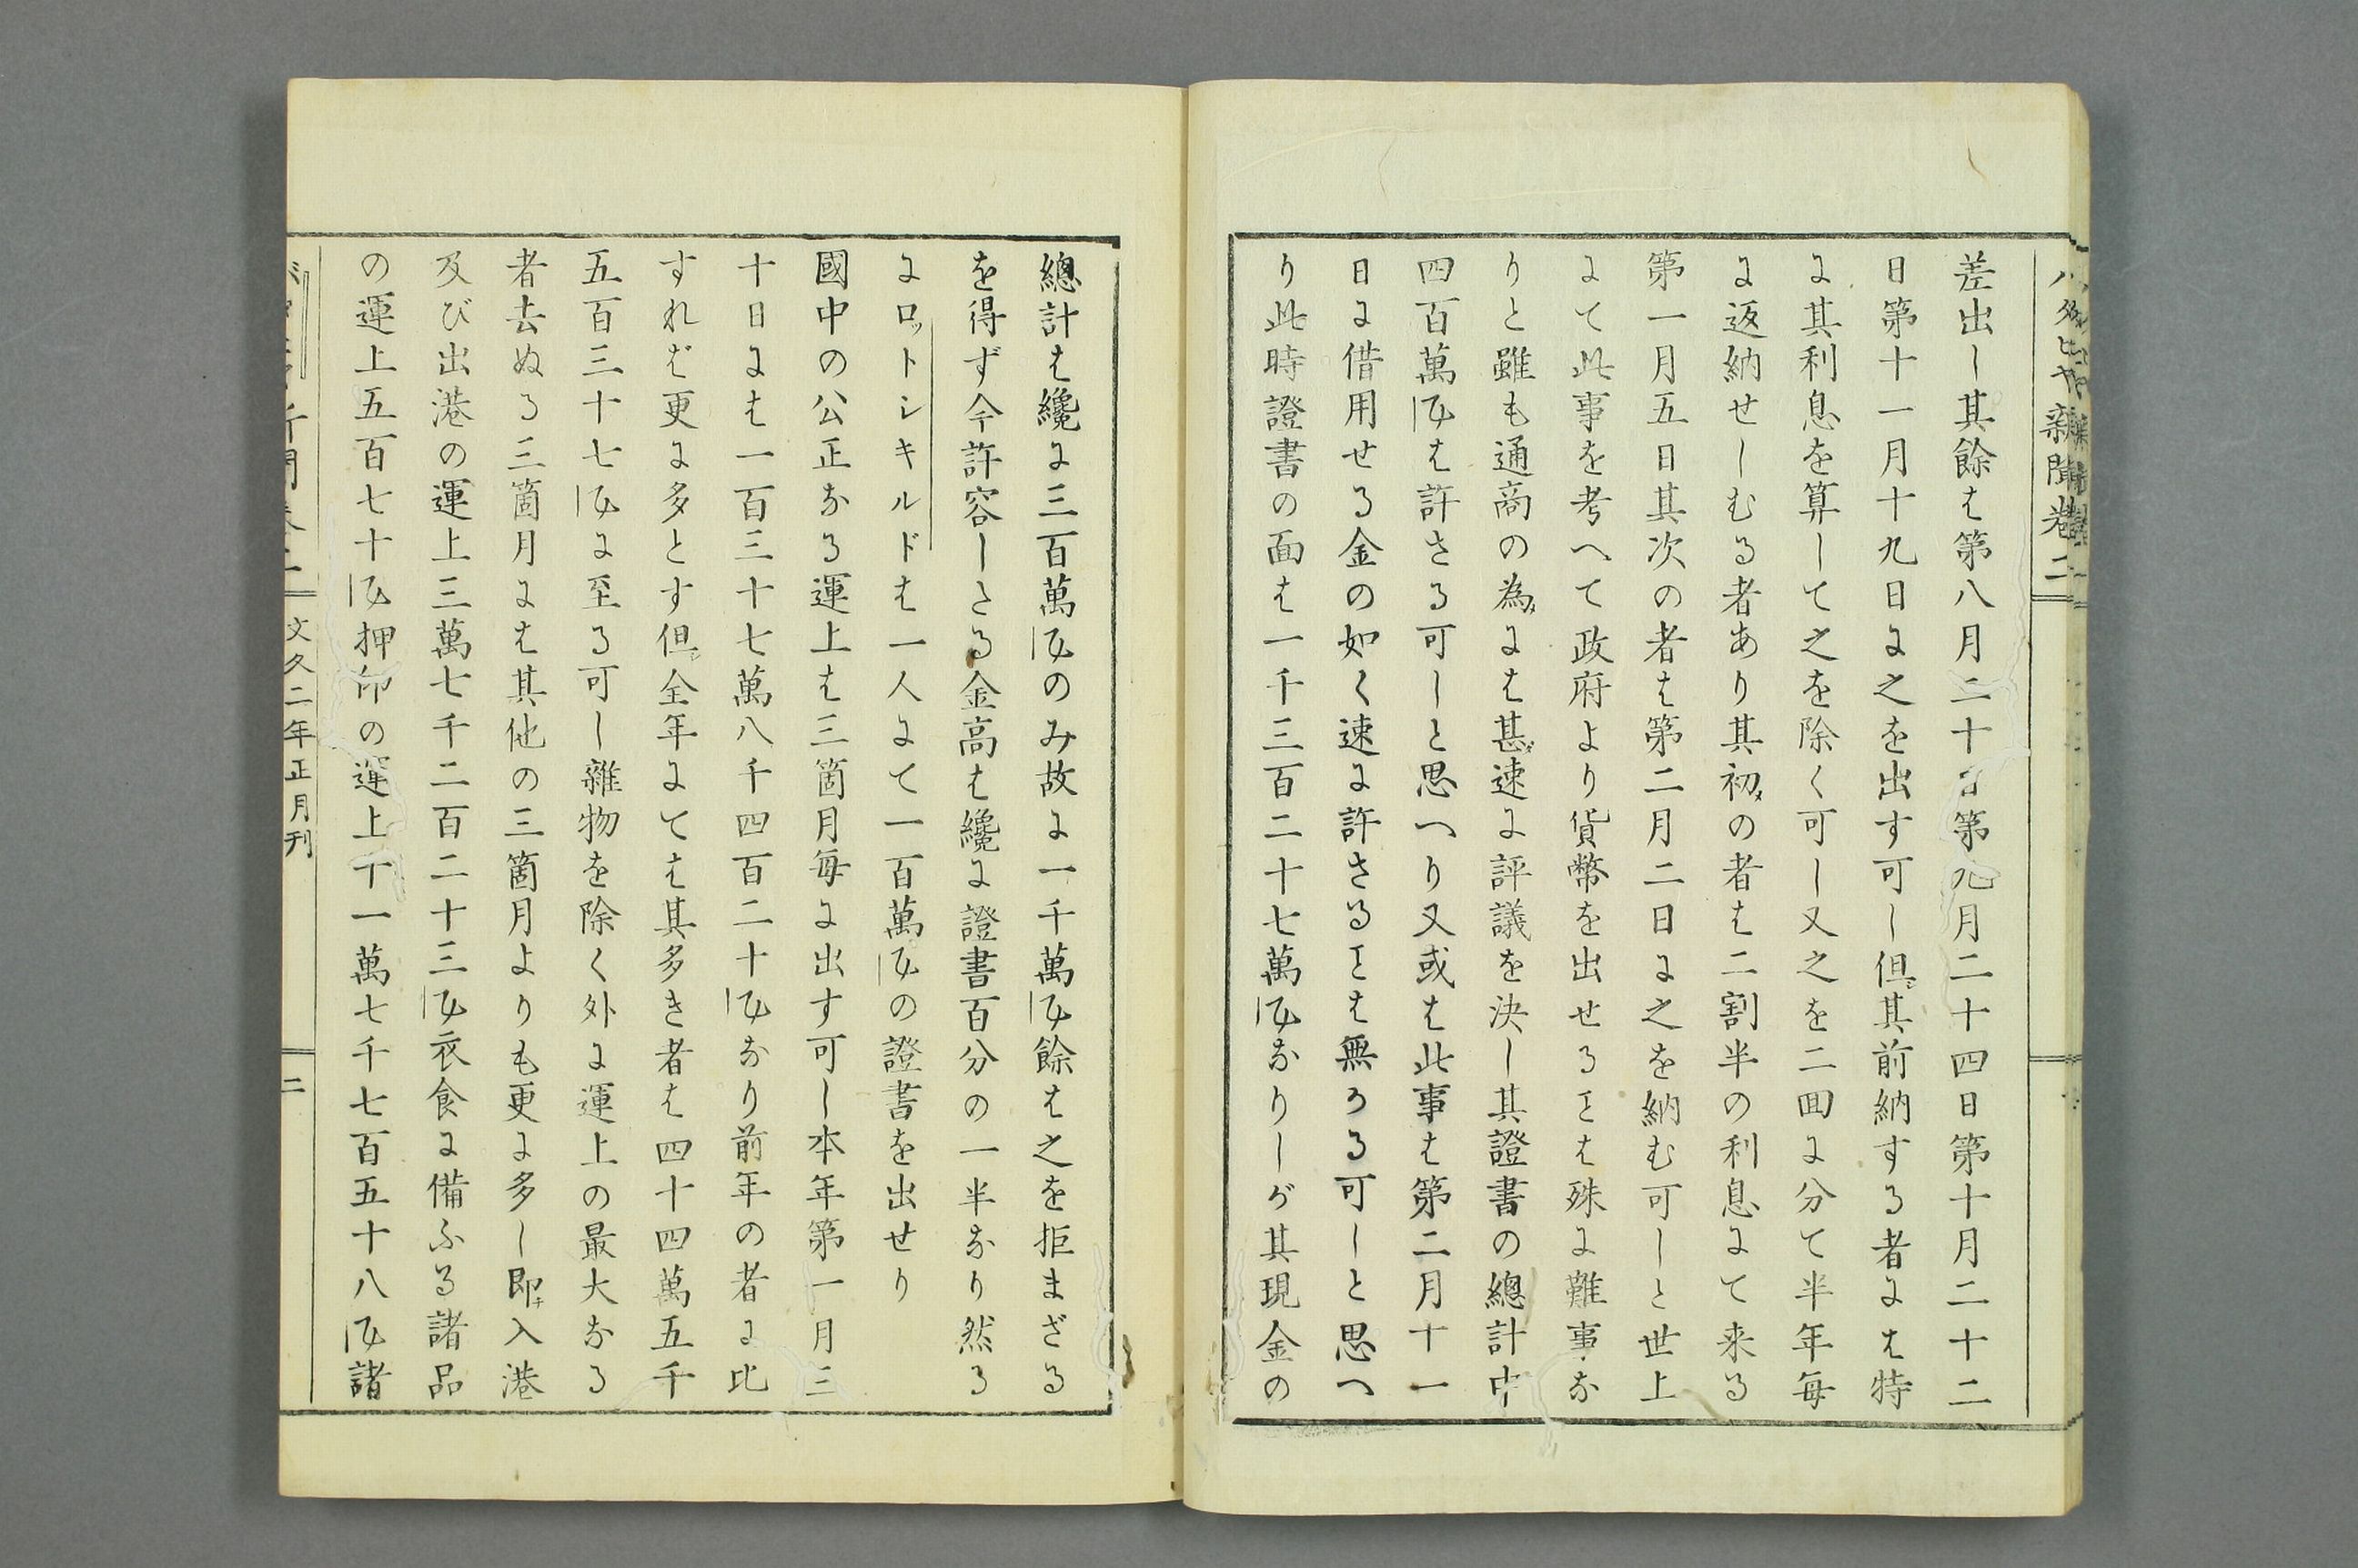 新聞巻二
差出し其餘は第八月二十日第九月二十四日第十月二十二
日第十一月十九日に之を出す可し但シ其前納する者には特
に其利息を算して之を除く可し又之を二回に分て半年毎
に返納せしむる者あり其初メの者は二割半の利息にて来る
第一月五日其次の者は第二月二日に之を納む可しと世上
にて此事を考へて政府より貨幣を出せるヿは殊に難事な
りと雖も通商の為メには甚タ速に評議を決し其證書の總計中
四百萬は許さる可しと思へり又或は此事は第二月十一
日に借用せる金の如く速に許さるヿは無かる可しと思へ
り此時證書の面は一千三百二十七萬なりしが其現金の
總計は纔に三百萬のみ故に一千萬餘は之を拒まざる
を得ず今許容しさる金高は纔に證書百分の一半なり然る
にロットシキルドは一人にて一百萬の證書を出せり
國中の公正なる運上は三箇月毎に出す可し本年第一月三
十日には一百三十七萬八千四百二十なり前年の者に比
すれば更に多とす但シ全年にては其多き者は四十四萬五千
五百三十七に至る可し雜物を除く外に運上の最大なる
者去ぬる三箇月には其他の三箇月よりも更に多し即チ入港
及び出港の運上三萬七千二百二十三衣食に備ふる諸品
の運上五百七十押印の運上十一萬七千七百五十八諸
文久二年正月刊
二